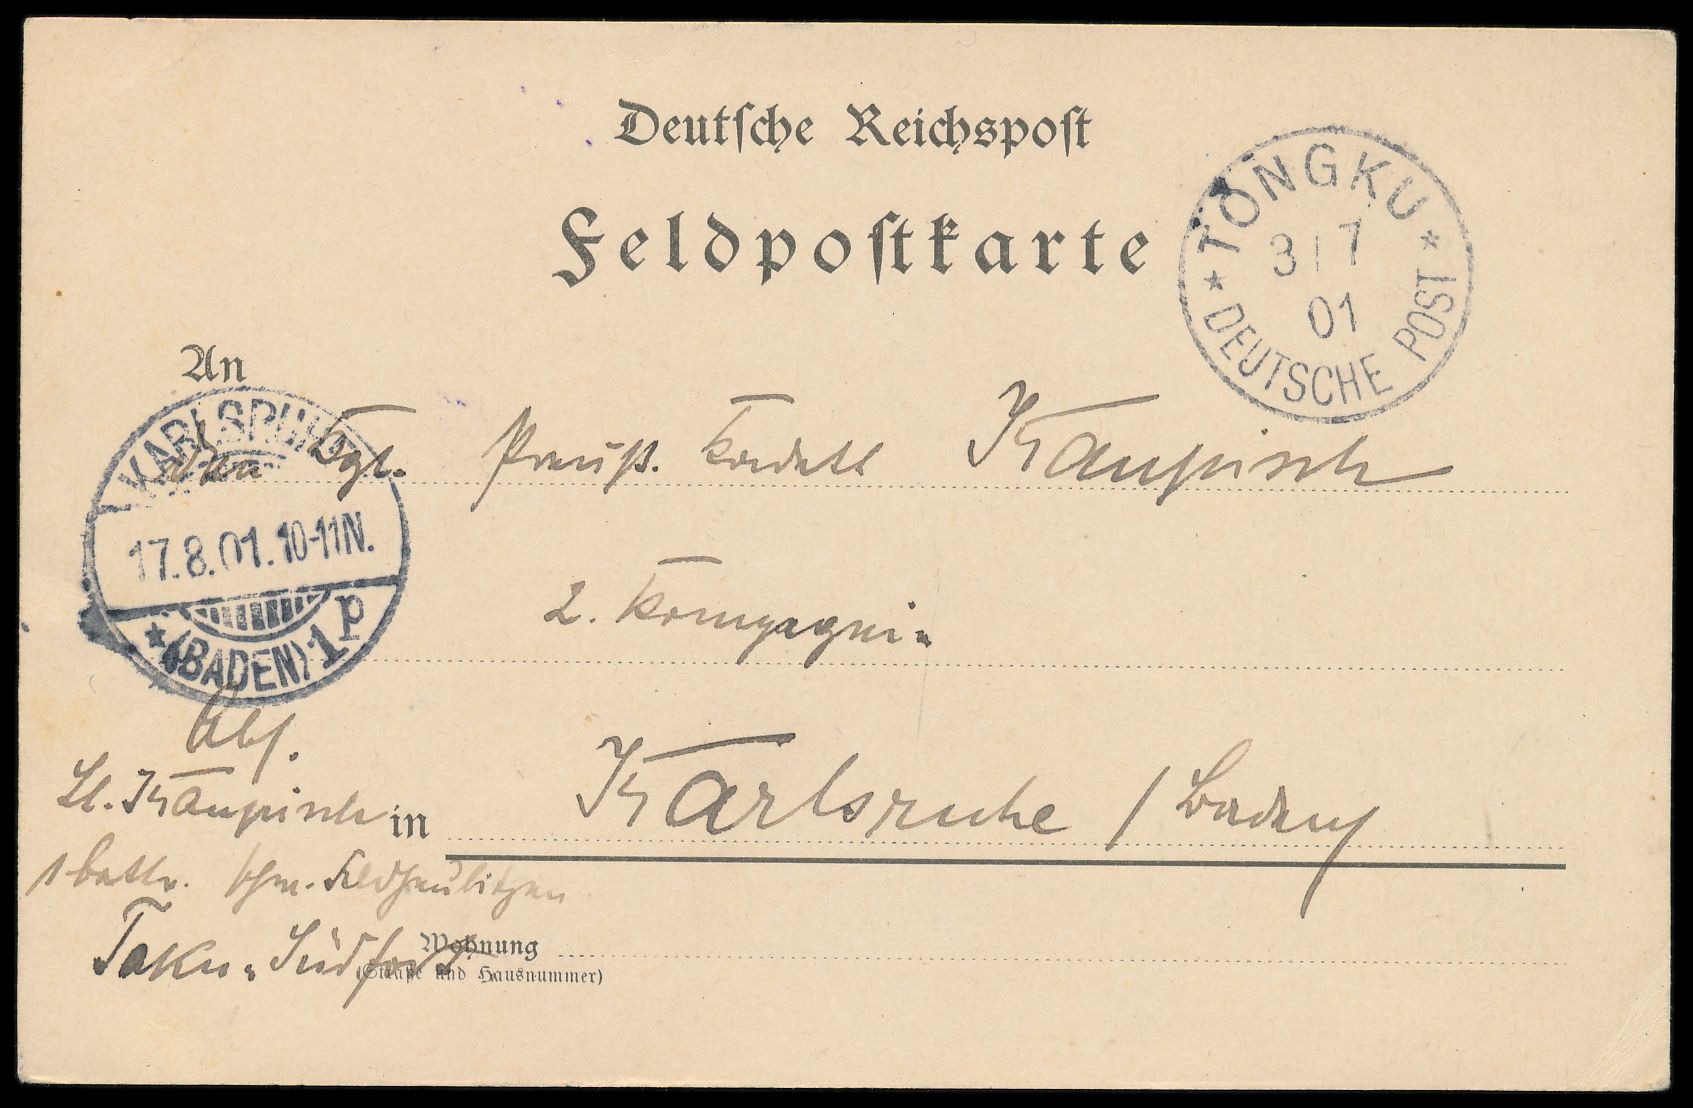 Deutsche Reichspost
Feldpostkarte
TONGKU
3 | 7
01
DEUTSCHE POST
An
KARLSRUHE
17.8.01.10-11N.
(BADEN) 1p
den Kgl. Preuß. Kadett Kaupisch
2. Kompagnie
Karlsruhe / Baden
in
Abs.
Lt. Kaupisch
1 Battr. schw. Feldhaubitzen
Taku-Südfort
Wohnung
(Straße und Hausnummer)